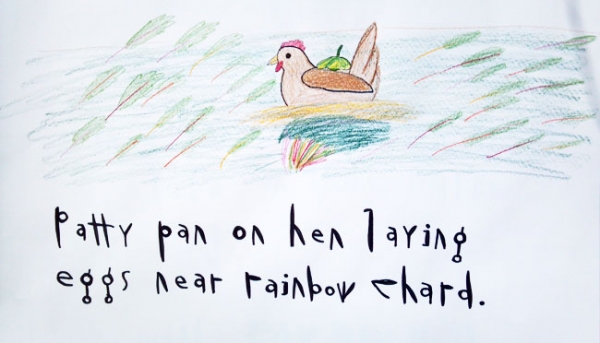 Patty pan on hen laying
eggs near rainbow chard.